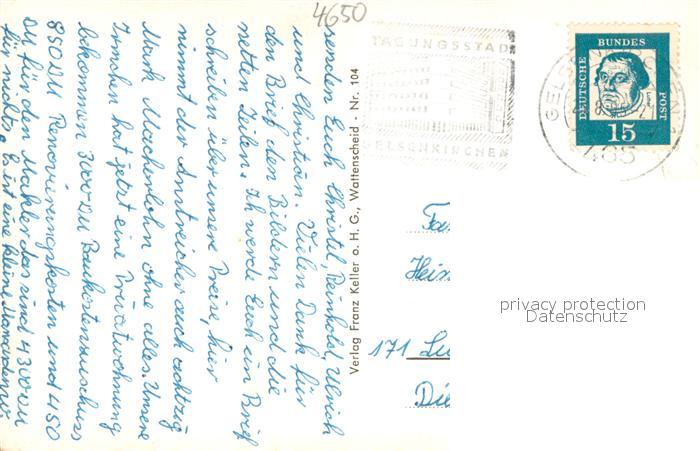 4650
senden Euch Christel, Reinhold, Ulrich
und Christian. Vielen Dank für
den Brief den Bildern und die
netten Zeilen. Ich werde Euch ein Brief
schreiben über unsere Preise, hier
nimmt der Anstreicher auch achtzig
Mark Machenlohn ohne alles. Unsere
Tochter hat jetzt eine Privatwohnung
bekommen 3000 DM Baukostenzuschuss
850 DM Renovierungskosten und 450
DM für den Makler das sind 4300 DM
für nichts. Es ist eine kleine
Verlag Franz Keller o. H. G., Wattenscheid - Nr. 104
TAGUNGSSTADT
GELSENKIRCHEN
GELSENKIRCHEN
465
DEUTSCHE BUNDESPOST
15
Fa
Hein
171 Lu
Die
privacy protection
Datenschutz